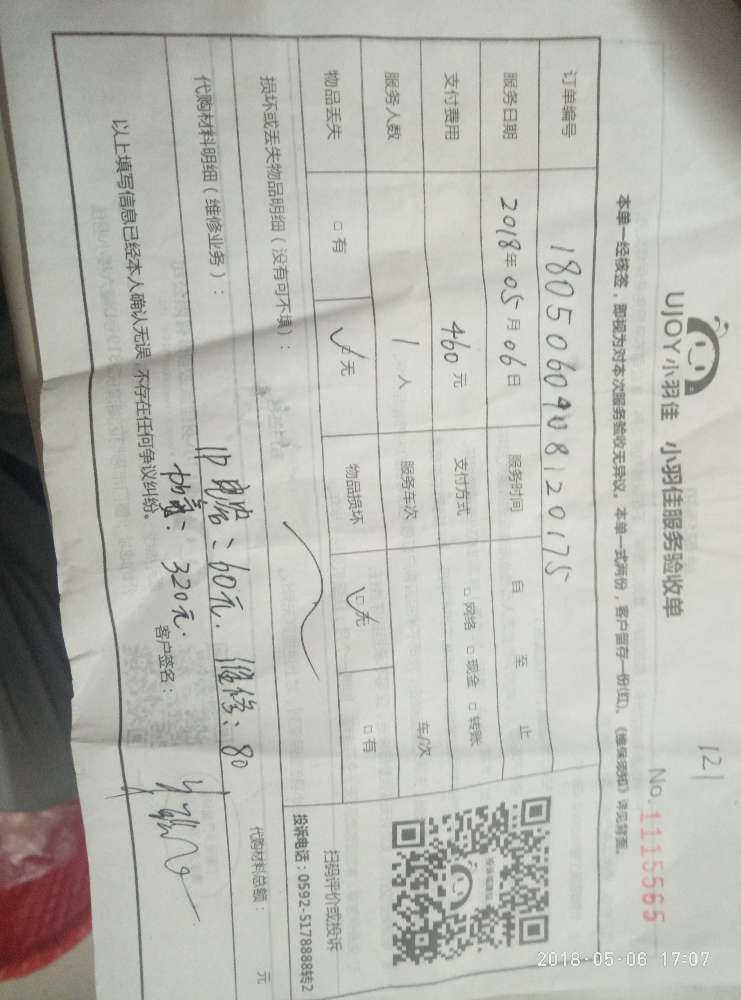 121
UJOY 小羽佳 小羽佳服务验收单
No. 1115565
本单一经核签，即视为对本次服务验收无异议。本单一式两份，客户留存一份(红)。《维保须知》详见背面。
订单编号 1805060908120175
服务日期 2018年 05月 06日 服务时间 自 至 止
支付费用 460元 支付方式 □网络 □现金 □转账
服务人数 1人 服务车次 车/次
物品丢失 □有 ☑无 物品损坏 ☑无 □有
损坏或丢失物品明细（没有可不填）：
扫码评价或投诉
投诉电话：0592-5178888转2
代购材料明细（维修业务）：
60元. 维修：80
320元.
代购材料总额： 元
以上填写信息已经本人确认无误 不存在任何争议纠纷。
客户签名：
2018-05-06 17:07